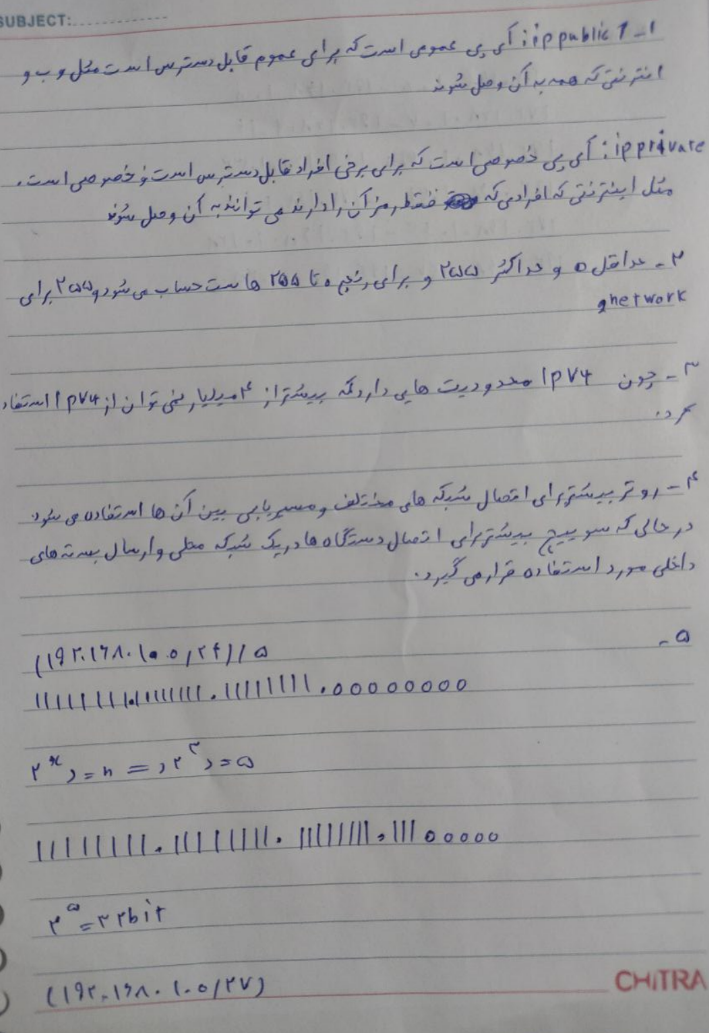 SUBJECT:
۱- ip public: آی پی عمومی است که برای عموم قابل دسترس است مثل وب و
اینترنتی که همه به آن وصل شوند
ip private: آی پی خصوصی است که برای برخی افراد قابل دسترس است و خصوصی است.
مثل اینترنتی که افرادی که فقط رمز آن را دارند می توانند به آن وصل شوند
۲- حداقل ۰ و حداکثر ۲۵۵ و برای رنج ۰ تا ۲۵۵ هاست حساب می شود و ۲۵۵ برای
network
۳- چون IPV4 محدودیت هایی دارد که بیشتر از ۴ میلیارد نمی توان از IPV4 استفاده
کرد.
۴- روتر بیشتر برای اتصال شبکه های مختلف و مسیریابی بین آن ها استفاده می شود
در حالی که سوییچ بیشتر برای اتصال دستگاه ها در یک شبکه محلی و ارسال بسته های
داخلی مورد استفاده قرار می گیرد.
۵- (۱۹۲.۱۶۸.۱۰.۰/۲۴)/۵
11111111.11111111.11111111.00000000
۲^x >= n => ۲^۳ >= ۵
11111111.11111111.11111111.11100000
۲^۵ = ۳۲bit
(۱۹۲.۱۶۸.۱۰.۰/۲۷)
CHITRA